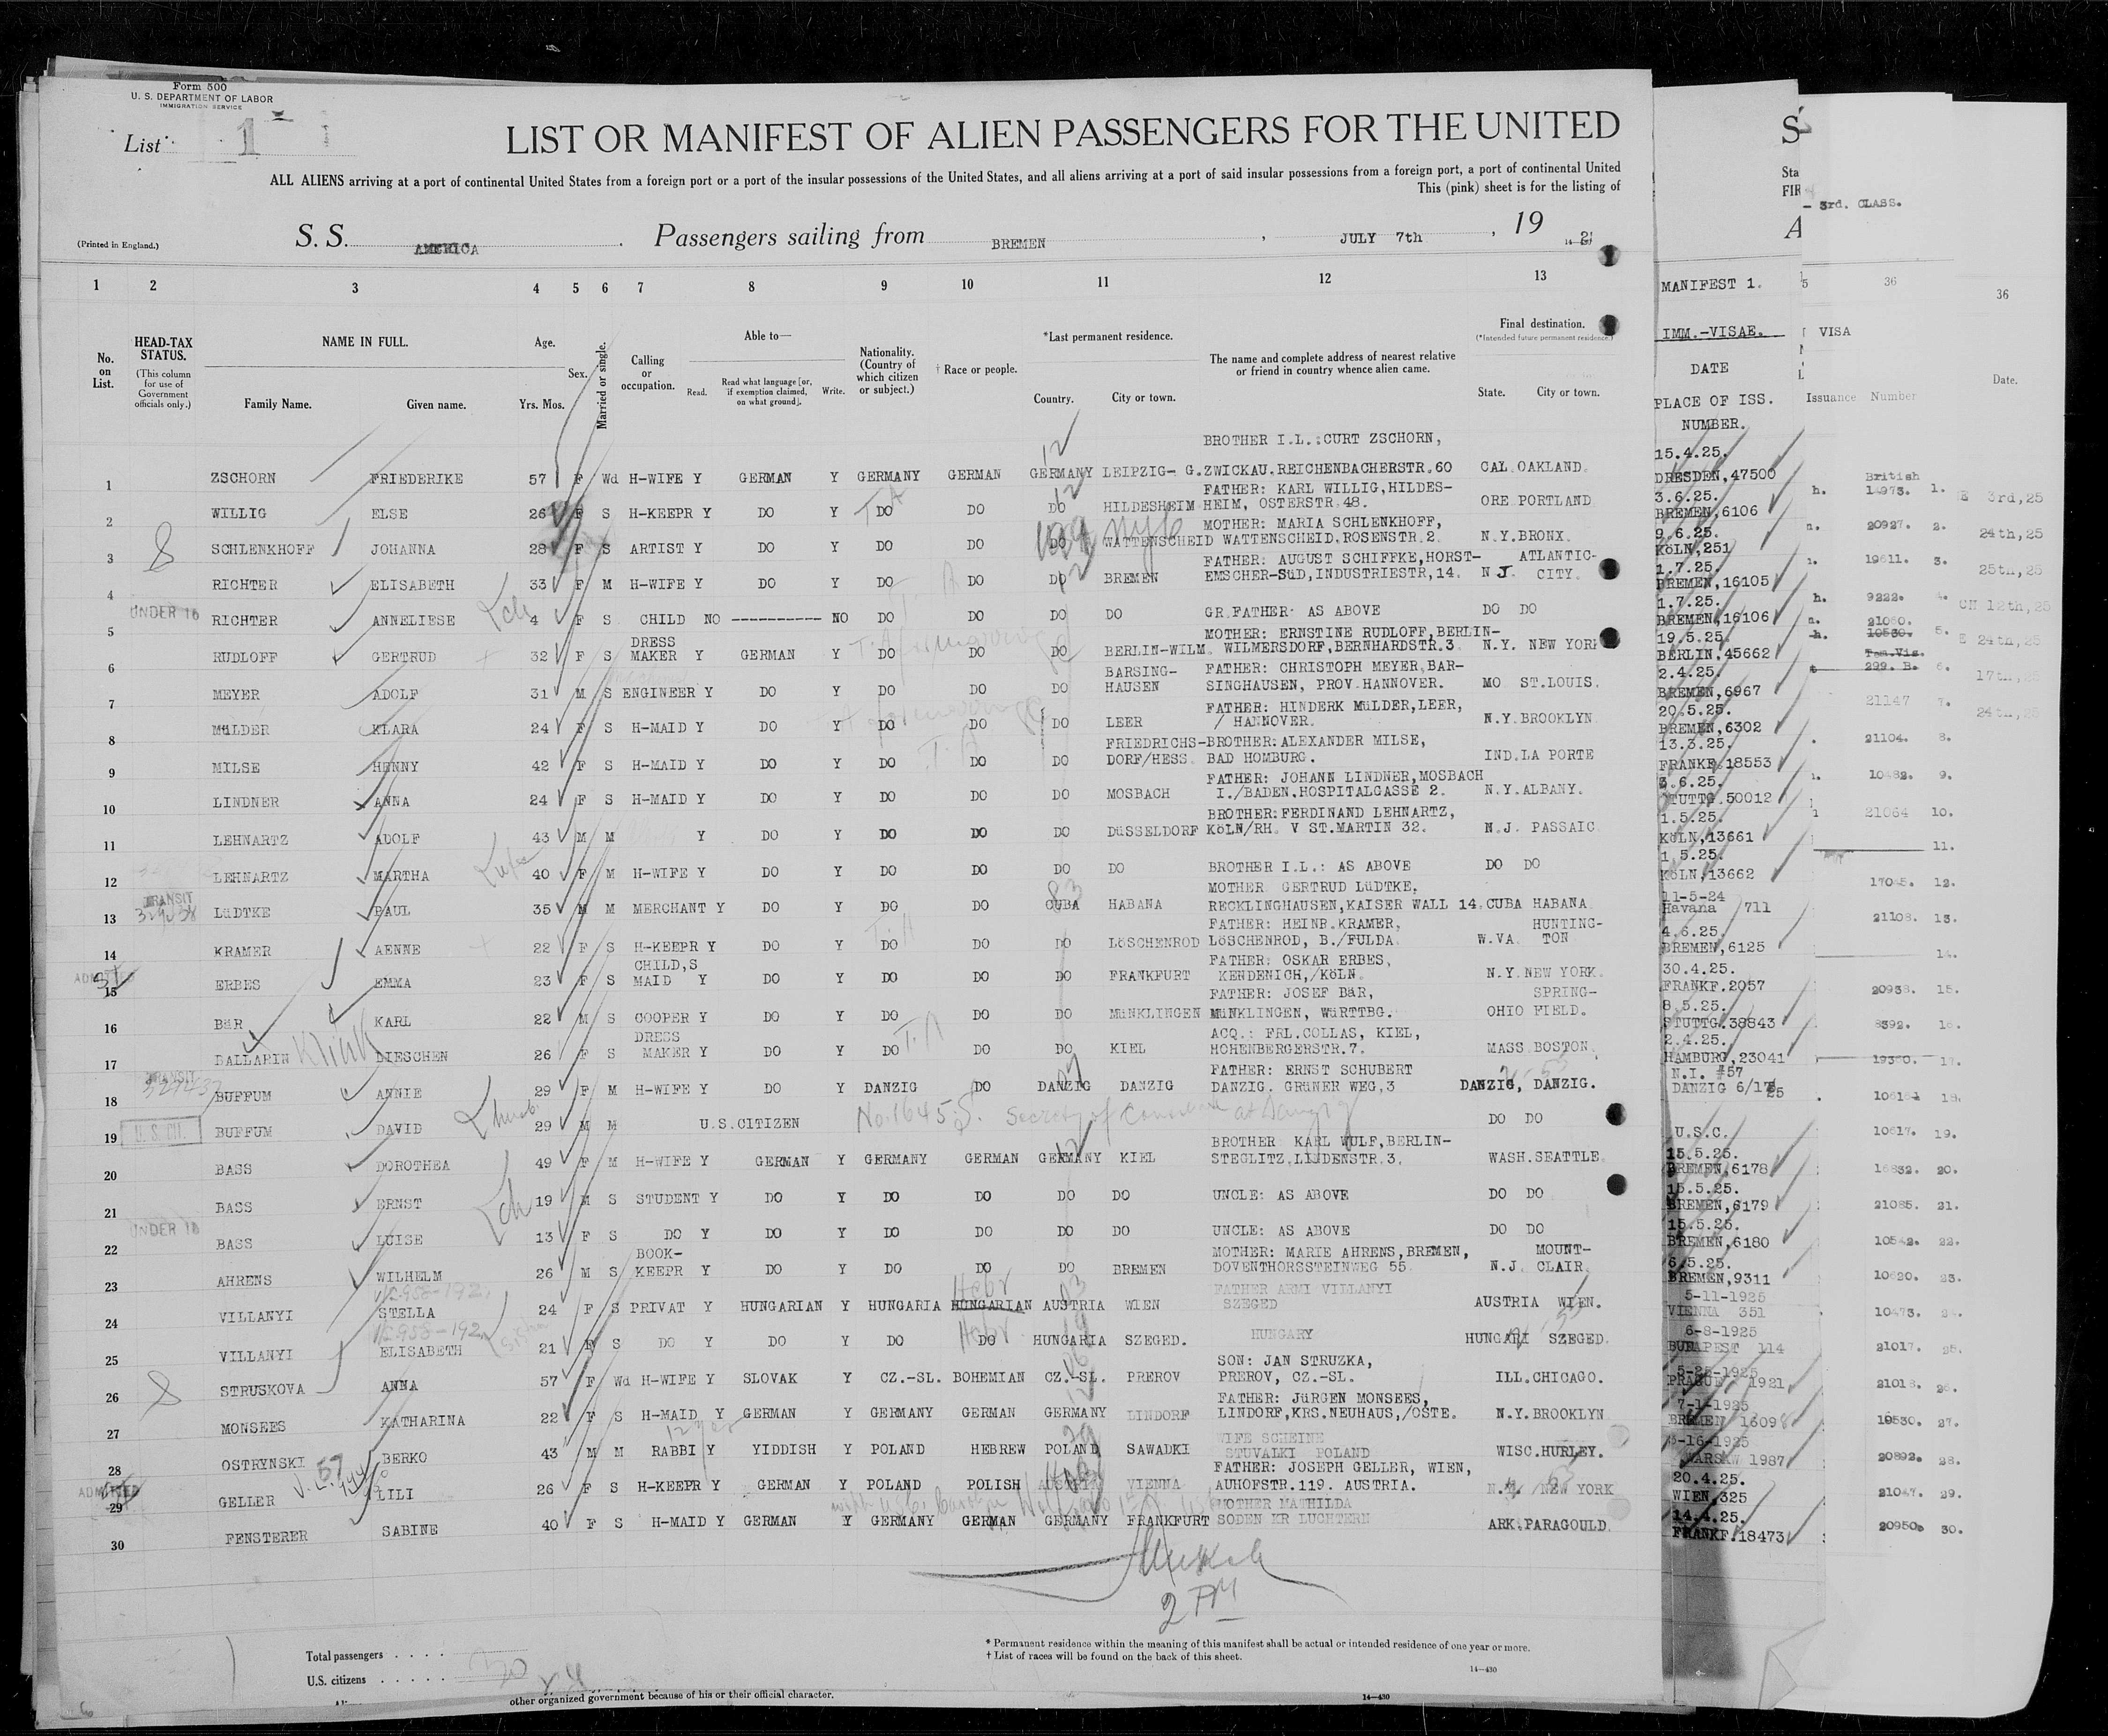 Form 500
U. S. DEPARTMENT OF LABOR
IMMIGRATION SERVICE
List 1
LIST OR MANIFEST OF ALIEN PASSENGERS FOR THE UNITED
ALL ALIENS arriving at a port of continental United States from a foreign port or a port of the insular possessions of the United States, and all aliens arriving at a port of said insular possessions from a foreign port, a port of continental United
This (pink) sheet is for the listing of
(Printed in England.)
S. S. AMERICA. Passengers sailing from BREMEN, JULY 7th, 19
1 2 3 4 5 6 7 8 9 10 11 12 13
No. on List.
HEAD-TAX STATUS.
(This column for use of Government officials only.)
NAME IN FULL.
Family Name. Given name.
Age.
Yrs. Mos.
Sex.
Married or single.
Calling or occupation.
Able to—
Read. Read what language [or, if exemption claimed, on what ground]. Write.
Nationality. (Country of which citizen or subject.)
† Race or people.
*Last permanent residence.
Country. City or town.
The name and complete address of nearest relative or friend in country whence alien came.
Final destination.
(*Intended future permanent residence.)
State. City or town.
MANIFEST 1.
IMM.-VISAE.
DATE
PLACE OF ISS.
NUMBER.
3rd. CLASS.
36
VISA
Issuance Number
36
Date.
BROTHER I.L.:CURT ZSCHORN, 15.4.25.
1 ZSCHORN FRIEDERIKE 57 F Wd H-WIFE Y GERMAN Y GERMANY GERMAN GERMANY LEIPZIG- G.ZWICKAU.REICHENBACHERSTR.60 CAL.OAKLAND. DRESDEN,47500
FATHER: KARL WILLIG,HILDES- 3.6.25.
2 WILLIG ELSE 26 F S H-KEEPR Y DO Y DO DO DO HILDESHEIM HEIM, OSTERSTR.48. ORE PORTLAND BREMEN,6106
MOTHER: MARIA SCHLENKHOFF, 9.6.25.
3 SCHLENKHOFF JOHANNA 28 F S ARTIST Y DO Y DO DO DO WATTENSCHEID WATTENSCHEID.ROSENSTR.2. N.Y.BRONX. KöLN,251
FATHER: AUGUST SCHIFFKE,HORST- ATLANTIC- 1.7.25.
4 RICHTER ELISABETH 33 F M H-WIFE Y DO Y DO DO DO BREMEN EMSCHER-SüD,INDUSTRIESTR,14. N.J. CITY. BREMEN,16105
UNDER 16 1.7.25.
5 RICHTER ANNELIESE 4 F S CHILD NO ---------- NO DO DO DO DO GR.FATHER: AS ABOVE DO DO BREMEN,16106
DRESS MOTHER: ERNSTINE RUDLOFF,BERLIN- 19.5.25.
6 RUDLOFF GERTRUD 32 F S MAKER Y GERMAN Y DO DO DO BERLIN-WILM. WILMERSDORF,BERNHARDSTR.3 N.Y. NEW YORK BERLIN,45662
BARSING- FATHER: CHRISTOPH MEYER,BAR- 2.4.25.
7 MEYER ADOLF 31 M S ENGINEER Y DO Y DO DO DO HAUSEN SINGHAUSEN, PROV.HANNOVER. MO ST.LOUIS. BREMEN,6967
FATHER: HINDERK MüLDER,LEER, 20.5.25.
8 MüLDER KLARA 24 F S H-MAID Y DO Y DO DO DO LEER / HANNOVER. N.Y.BROOKLYN BREMEN,6302
FRIEDRICHS- BROTHER:ALEXANDER MILSE, 13.3.25.
9 MILSE HENNY 42 F S H-MAID Y DO Y DO DO DO DORF/HESS. BAD HOMBURG. IND.LA PORTE FRANKF.18553
FATHER: JOHANN LINDNER,MOSBACH 3.6.25.
10 LINDNER ANNA 24 F S H-MAID Y DO Y DO DO DO MOSBACH I./BADEN,HOSPITALGASSE 2. N.Y.ALBANY. STUTTG.50012
BROTHER:FERDINAND LEHNARTZ, 1.5.25.
11 LEHNARTZ ADOLF 43 M M Y DO Y DO DO DO DüSSELDORF KöLN/RH. V ST.MARTIN 32. N.J. PASSAIC KöLN,13661
1 5.25.
12 LEHNARTZ MARTHA 40 F M H-WIFE Y DO Y DO DO DO DO BROTHER I.L.: AS ABOVE DO DO KöLN,13662
TRANSIT MOTHER GERTRUD LüDTKE, 11-5-24
13 LüDTKE PAUL 35 M M MERCHANT Y DO Y DO DO CUBA HABANA RECKLINGHAUSEN,KAISER WALL 14. CUBA HABANA. Havana 711
FATHER: HEINR.KRAMER, HUNTING- 4.6.25.
14 KRAMER AENNE 22 F S H-KEEPR Y DO Y DO DO DO LöSCHENROD LöSCHENROD, B./FULDA. W.VA. TON BREMEN,6125
ADMITTED CHILD,S FATHER: OSKAR ERBES, 30.4.25.
15 ERBES EMMA 23 F S MAID Y DO Y DO DO DO FRANKFURT KENDENICH,/KöLN. N.Y.NEW YORK. FRANKF.2057
FATHER: JOSEF BäR, SPRING- 8.5.25.
16 BäR KARL 22 M S COOPER Y DO Y DO DO DO MüNKLINGEN MüNKLINGEN, WüRTTBG. OHIO FIELD. STUTTG.38843
DRESS ACQ.: FRL.COLLAS, KIEL, 2.4.25.
17 BALLARIN Klink DIESCHEN 26 F S MAKER Y DO Y DO DO DO KIEL HOHENBERGERSTR.7. MASS.BOSTON. HAMBURG,23041
TRANSIT FATHER: ERNST SCHUBERT N.I. #57
18 BUFFUM ANNIE 29 F M H-WIFE Y DO Y DANZIG DO DANZIG DANZIG DANZIG. GRüNER WEG,3 DANZIG, DANZIG. DANZIG 6/17/25
19 U.S.CIT. BUFFUM DAVID 29 M M U.S.CITIZEN DO DO U.S.C.
BROTHER KARL WULF,BERLIN- 15.5.25.
20 BASS DOROTHEA 49 F M H-WIFE Y GERMAN Y GERMANY GERMAN GERMANY KIEL STEGLITZ.LINDENSTR.3. WASH.SEATTLE. BREMEN,6178
15.5.25.
21 BASS ERNST 19 M S STUDENT Y DO Y DO DO DO DO UNCLE: AS ABOVE DO DO BREMEN,6179
UNDER 16 15.5.25.
22 BASS LUISE 13 F S DO Y DO Y DO DO DO DO UNCLE: AS ABOVE DO DO BREMEN,6180
BOOK- MOTHER: MARIE AHRENS,BREMEN, MOUNT- 6.5.25.
23 AHRENS WILHELM 26 M S KEEPR Y DO Y DO DO DO BREMEN DOVENTHORSSTEINWEG 55. N.J. CLAIR. BREMEN,9311
Hebr FATHER ARMI VILLANYI 5-11-1925
24 VILLANYI STELLA 24 F S PRIVAT Y HUNGARIAN Y HUNGARIA HUNGARIAN AUSTRIA WIEN SZEGED AUSTRIA WIEN. VIENNA 351
Hebr HUNGARY 6-8-1925
25 VILLANYI ELISABETH 21 F S DO Y DO Y DO DO HUNGARIA SZEGED. HUNGARI SZEGED. BUDAPEST 114
SON: JAN STRUZKA, 5-25-1925
26 STRUSKOVA ANNA 57 F Wd H-WIFE Y SLOVAK Y CZ.-SL. BOHEMIAN CZ.-SL. PREROV PREROV, CZ.-SL. ILL.CHICAGO. PRAGUE 1921
FATHER: JüRGEN MONSEES, 7-1-1925
27 MONSEES KATHARINA 22 F S H-MAID Y GERMAN Y GERMANY GERMAN GERMANY LINDORF LINDORF,KRS.NEUHAUS,/OSTE. N.Y.BROOKLYN BREMEN 16098
WIFE SCHEINE
28 OSTRYNSKI BERKO 43 M M RABBI Y YIDDISH Y POLAND HEBREW POLAND SAWADKI STUVALKI POLAND WISC.HURLEY. WARSAW 1987
ADMITTED FATHER: JOSEPH GELLER, WIEN, 20.4.25.
29 GELLER LILI 26 F S H-KEEPR Y GERMAN Y POLAND POLISH AUSTRIA VIENNA AUHOFSTR.119. AUSTRIA. NEW YORK WIEN,325
MOTHER MATHILDA 14.4.25.
30 FENSTERER SABINE 40 F S H-MAID Y GERMAN Y GERMANY GERMAN GERMANY FRANKFURT SODEN KR LUCHTERN ARK.PARAGOULD. FRANKF.18473
British
14973. 1. 3rd,25
20927. 2. 24th,25
19611. 3. 25th,25
9222. 4. 12th,25
21060.
10530. 5. 24th,25
299. B. 6. 17th,25
21147 7. 24th,25
21104. 8.
10482. 9.
21064 10.
11.
17045. 12.
21108. 13.
14.
20938. 15.
8392. 16.
19360. 17.
18.
10617. 19.
16832. 20.
21085. 21.
10542. 22.
10620. 23.
10473. 24.
21017. 25.
21018. 26.
27.
20892. 28.
21047. 29.
20950. 30.
2 PM
Total passengers
U.S. citizens
* Permanent residence within the meaning of this manifest shall be actual or intended residence of one year or more.
† List of races will be found on the back of this sheet.
14—430
other organized government because of his or their official character.
14—430